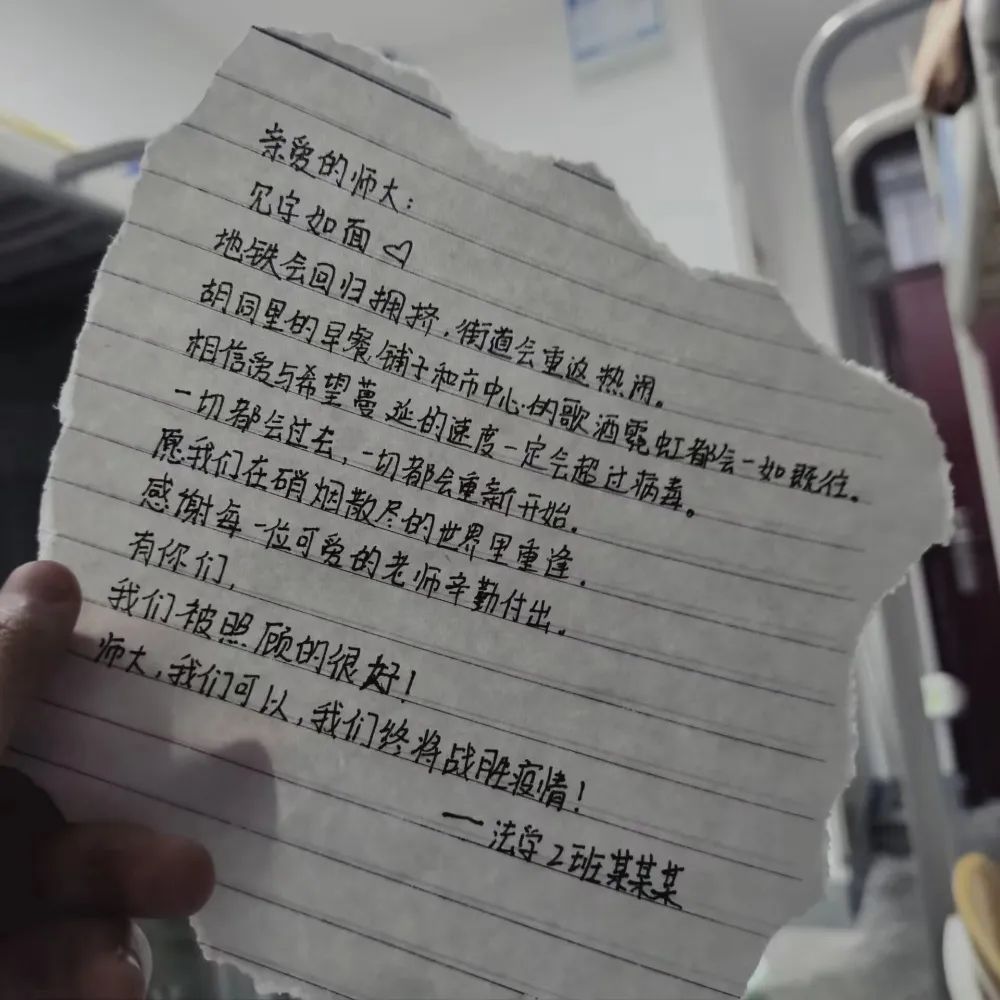 亲爱的师大：
见字如面♡
地铁会回归拥挤，街道会重返热闹。
胡同里的早餐铺子和市中心的歌酒霓虹都会一如既往。
相信爱与希望蔓延的速度一定会超过病毒。
一切都会过去，一切都会重新开始。
愿我们在硝烟散尽的世界里重逢。
感谢每一位可爱的老师辛勤付出。
有你们，
我们被照顾的很好！
师大，我们可以，我们终将战胜疫情！
—法学2班某某某